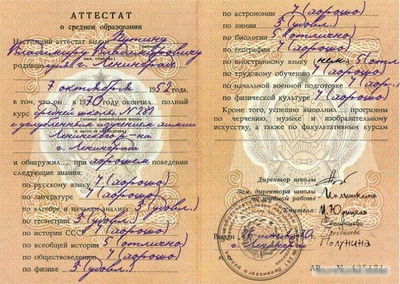 АТТЕСТАТ
о среднем образовании
Настоящий аттестат выдан Путину
Владимиру Владимировичу
родившемуся в г. Ленинграде
7 октября 1952
в том, что он в 1970 окончил полный
курс средней школы № 281
с углубленным изучением химии
Ленинского р-на
г. Ленинграда
и обнаружил при хорошем поведении
следующие знания:
по русскому языку 4 (хорошо)
по литературе 4 (хорошо)
по алгебре и началам анализа 3 (удовл.)
по геометрии 3 (удовл.)
по истории СССР 4 (хорошо)
по всеобщей истории 5 (отлично)
по обществоведению 4 (хорошо)
по физике 3 (удовл.)
по астрономии 4 (хорошо)
по химии 3 (удовл.)
по биологии 5 (отлично)
по географии 4 (хорошо)
по иностранному языку (нем) 5 (отл.)
по трудовому обучению 4 (хорошо)
по начальной военной подготовке 4 (хор.)
по физической культуре 4 (хорошо)
Кроме того, успешно выполнил программу
по черчению, музыке и изобразительному
искусству, а также по факультативным курсам
Директор школы
Зам. директора школы
по учебной работе
Учителя
Полунина
Выдан